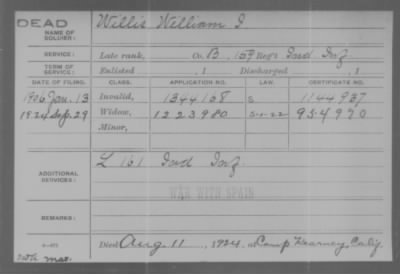 DEAD
NAME OF SOLDIER: Willis William I
SERVICE: Late rank, Co. B, 159 Reg't Ind Inf
TERM OF SERVICE: Enlisted , 1 Discharged , 1
DATE OF FILING. CLASS. APPLICATION NO. LAW. CERTIFICATE NO.
1906 Jan. 13 Invalid, 1344158 S 1144937
1924 Sep. 29 Widow, 1223980 5-1-22 954990
Minor,
ADDITIONAL SERVICES: L 161 Ind Inf
WAR WITH SPAIN
REMARKS:
Died Aug 11, 1924, at Camp Kearney, Calif.